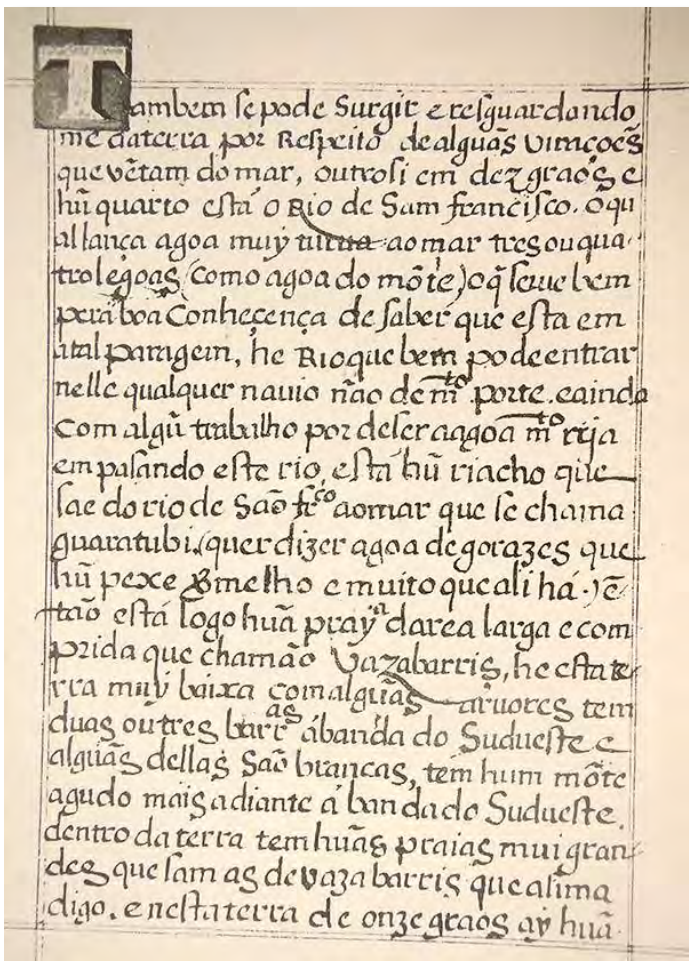 Tambem se pode Surgir e resguardando
me daterra por Respeito de alguãs viraçoẽs
que vẽtam do mar, outrosi em dez graos e
hũ quarto está o Rio de Sam francisco. o qu
al lança agoa muy turua ao mar tres ou qua
tro legoas (como agoa do mõte) o q̃ serue bem
pera boa Conheçença de saber que esta em
atal paragem, he Rio que bem pode entrar
nelle qualquer nauio não de m.to porte. e ainda
com algũ trabalho por de ser a agoa m.to rija
em pasando este rio, está hũ riacho que
sae do rio de São fr.co ao mar que se chama
guaratubi, (quer dizer agoa de gorazes que
hũ pexe vermelho e muito que ali há.) ẽ
tão está logo huã praya darea larga e com
prida que chamão Vazabarris, he esta te
rra muy baixa com alguãs aruores tem
duas ou tres barr.as á banda do Sudueste e
alguãs dellas São brancas, tem hum mõte
agudo mais adiante á banda do Sudueste.
dentro da terra tem huãs praias mui gran
des que sam as de vaza barris que asima
digo. e nesta terra de onze graos ay huã